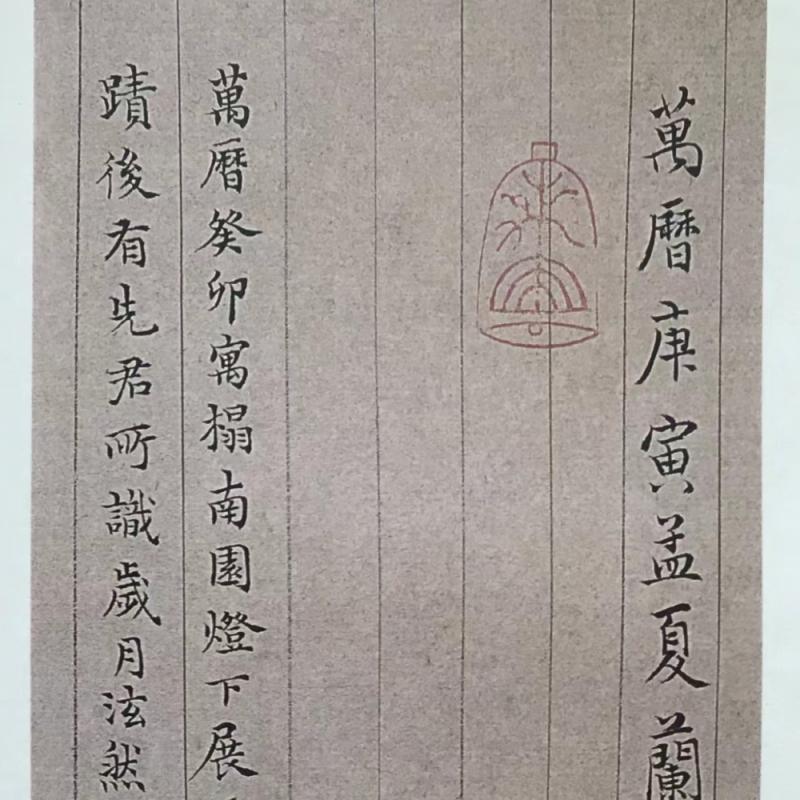 萬曆庚寅孟夏蘭
萬曆癸卯寓榻南園燈下展
蹟後有先君所識歲月泫然